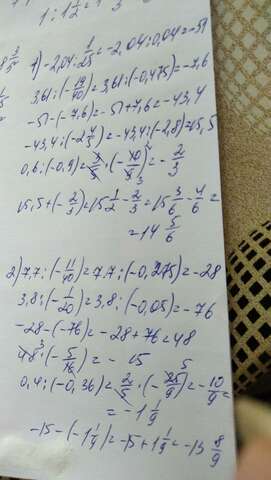 1) -2,04 : 1/25 = -2,04 : 0,04 = -51
3,61 : (-19/40) = 3,61 : (-0,475) = -7,6
-51 - (-7,6) = -51 + 7,6 = -43,4
-43,4 : (-2 4/5) = -43,4 : (-2,8) = 15,5
0,6 : (-0,9) = 3/5 · (-10/9) = -2/3
15,5 + (-2/3) = 15 1/2 - 2/3 = 15 3/6 - 4/6 =
= 14 5/6
2) 7,7 : (-11/40) = 7,7 : (-0,275) = -28
3,8 : (-1/20) = 3,8 : (-0,05) = -76
-28 - (-76) = -28 + 76 = 48
48 · (-5/16) = -15
0,4 : (-0,36) = 2/5 · (-25/9) = -10/9 =
= -1 1/9
-15 - (-1 1/9) = -15 + 1 1/9 = -13 8/9